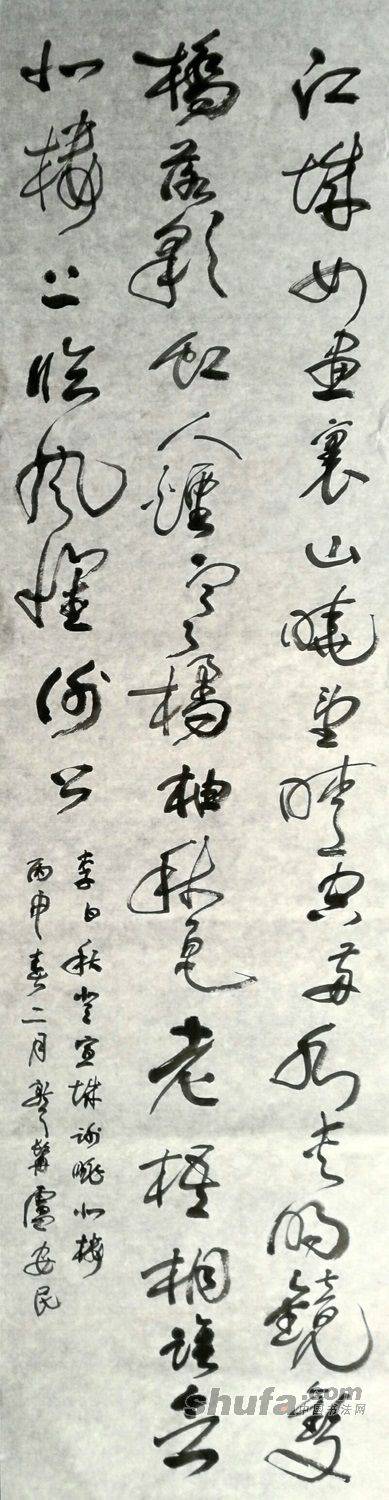 江城如畫裏山曉望晴空兩水夾明鏡雙
橋落彩虹人煙寒橘柚秋色老梧桐誰念
北樓上臨風懷謝公
李白秋登宣城謝朓北樓
丙申春二月盧安民
shufa.com
中国书法网